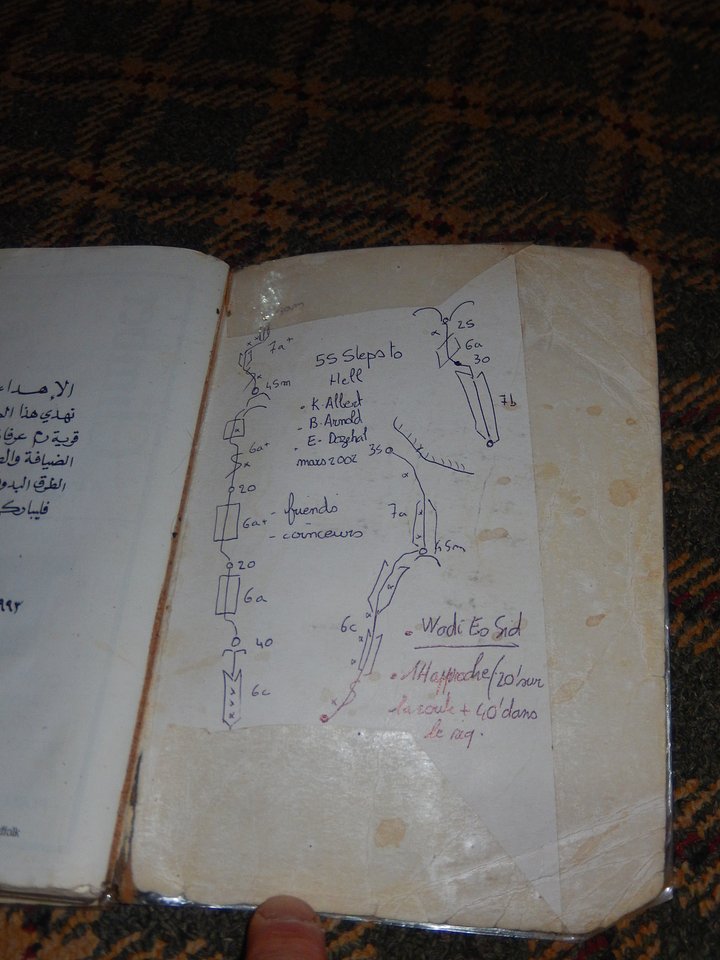 الإهداء
نهدي هذا
قرية رم
الضيافة
الطرق
١٩٩٢
ffolk
7a+
45m
6a+
20
6a+
20
6a
40
6c
55 Steps to
Hell
• K. Albert
• B. Arnold
• E.
mars 2002
- friends
- coinceurs
25
6a
30
7b
35
7a
45m
6c
• Wadi Es Sid
• 1H approche (20' sur
la route + 40' dans
le siq.